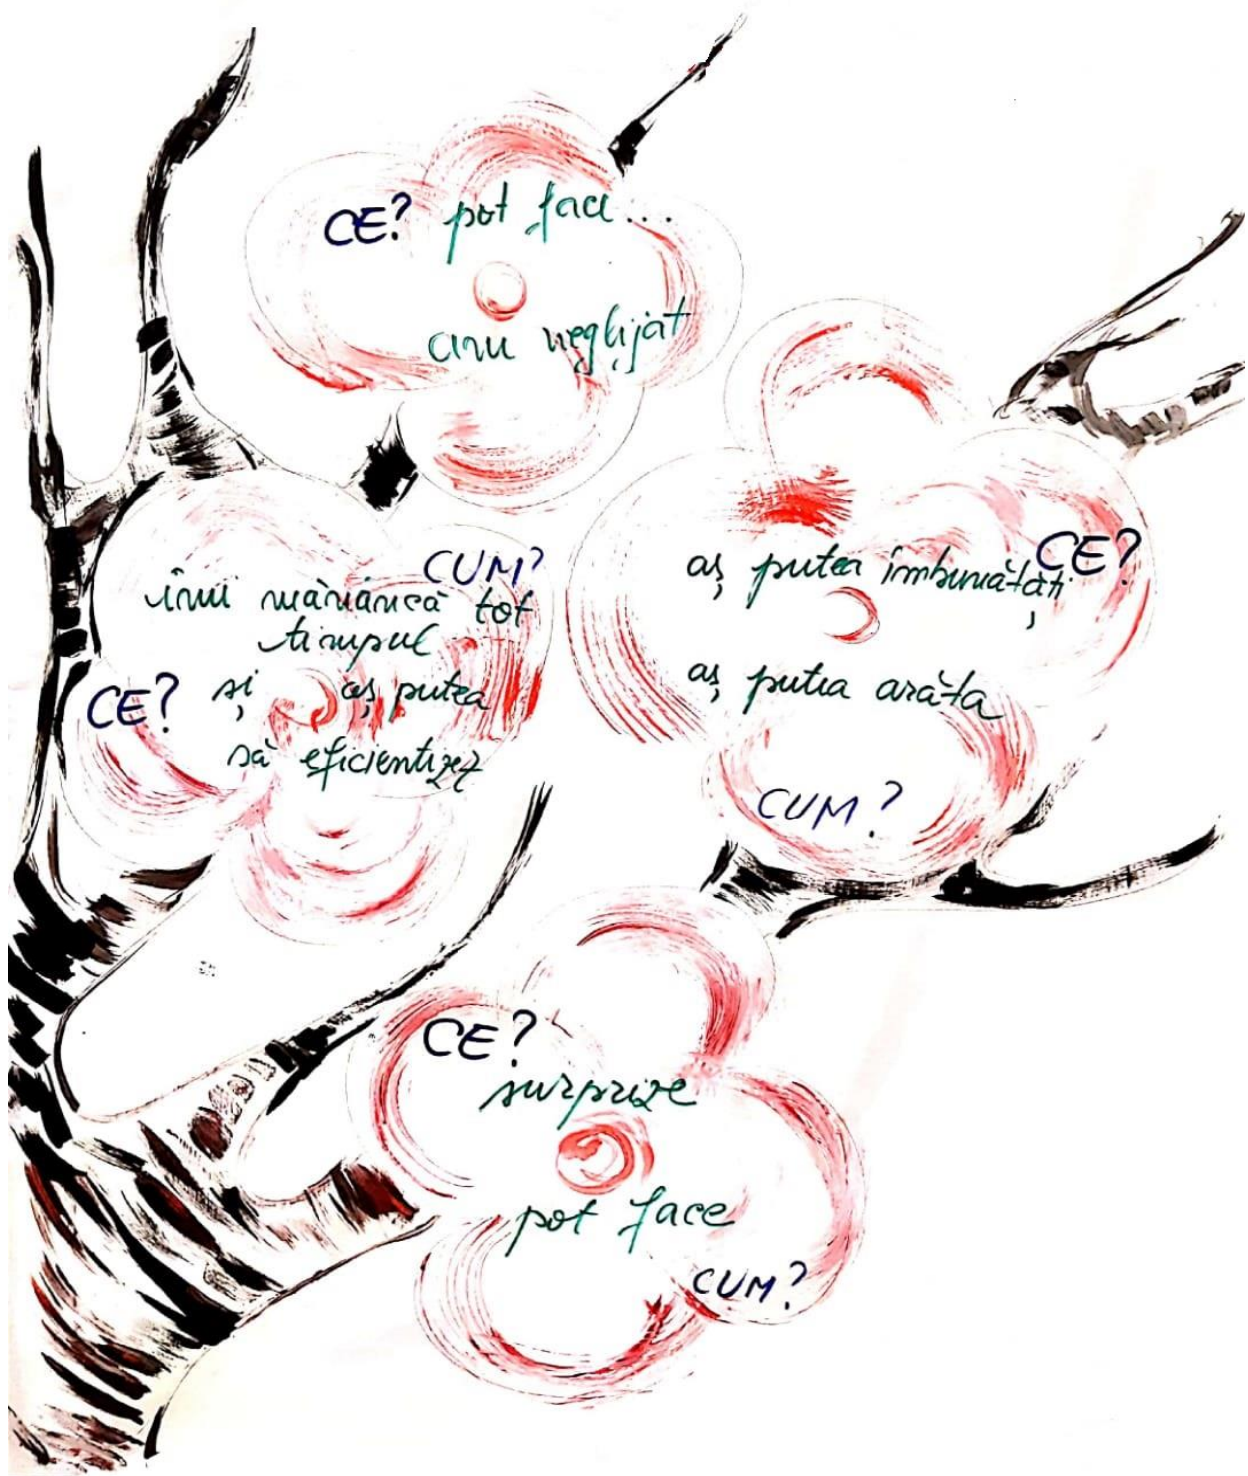 CE? pot face...
am neglijat
CUM?
îmi mănâncă tot
timpul
CE? și aș putea
să eficientizez
CE?
aș putea îmbunătăți
aș putea arăta
CUM?
CE?
surprize
pot face
CUM?